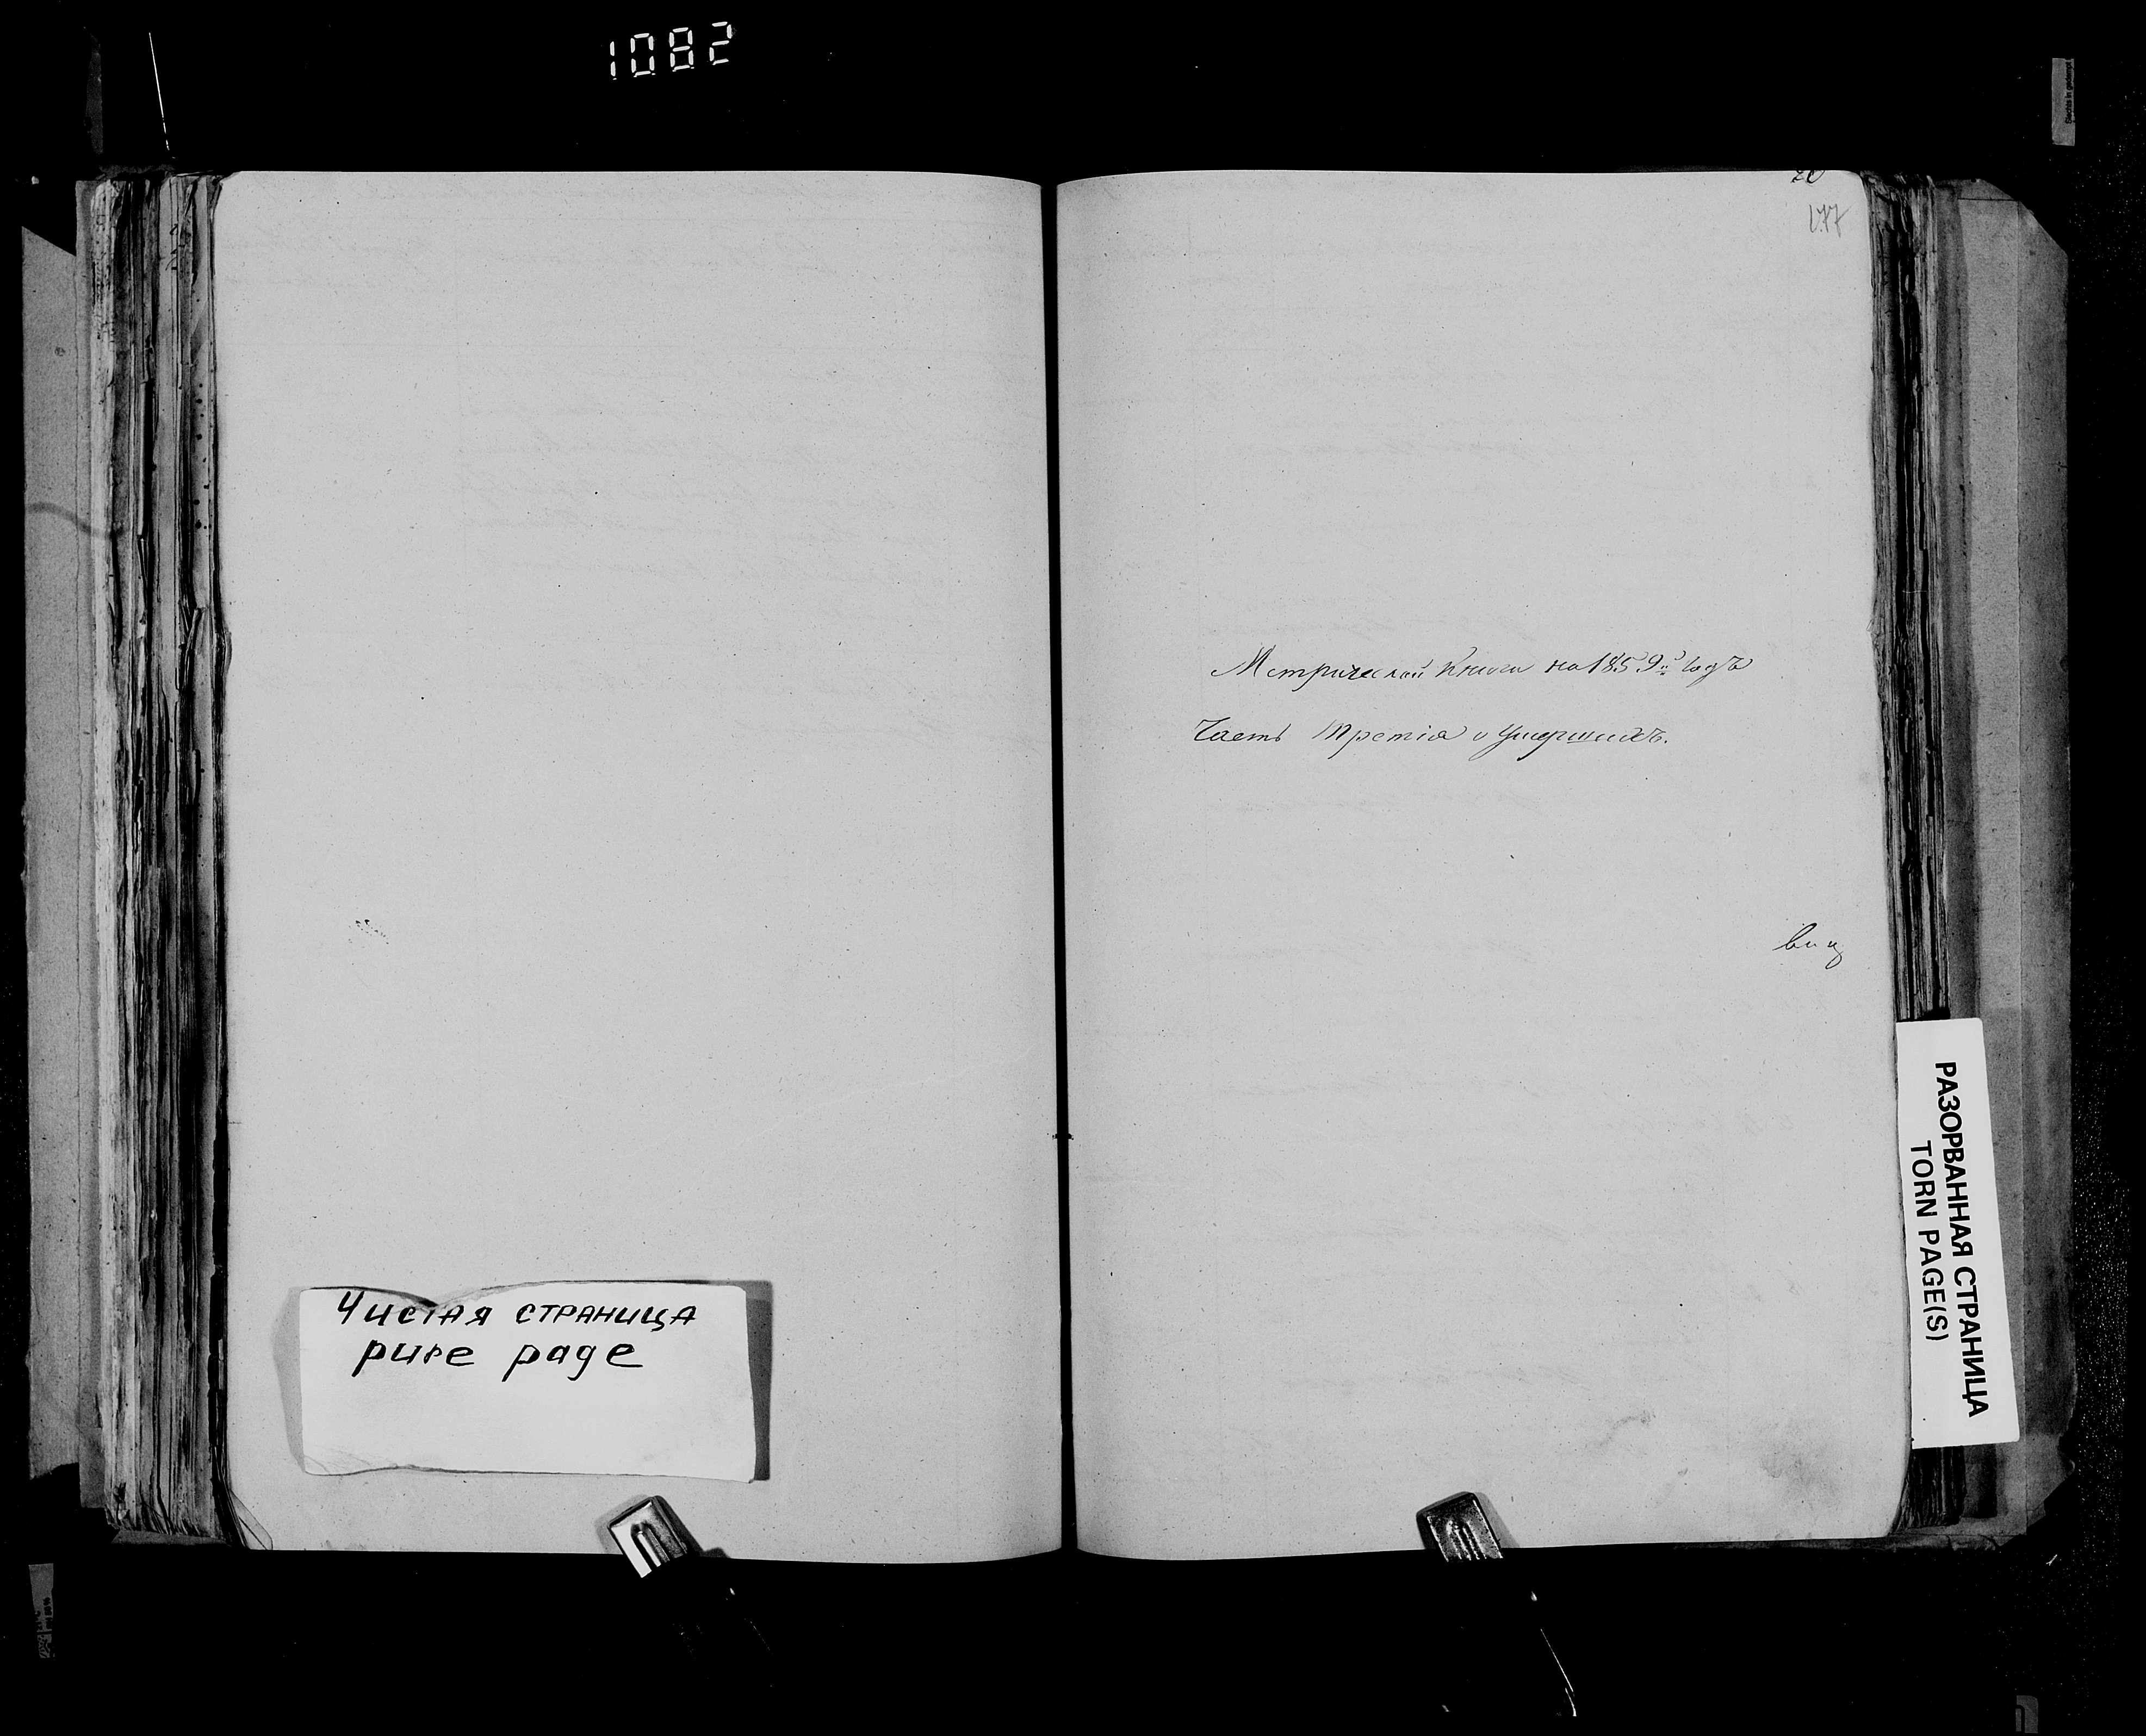 1082
177
Метрической Книги на 1859й годъ
Часть Третія о Умершихъ.
Чистая страница
pure page
РАЗОРВАННАЯ СТРАНИЦА
TORN PAGE(S)